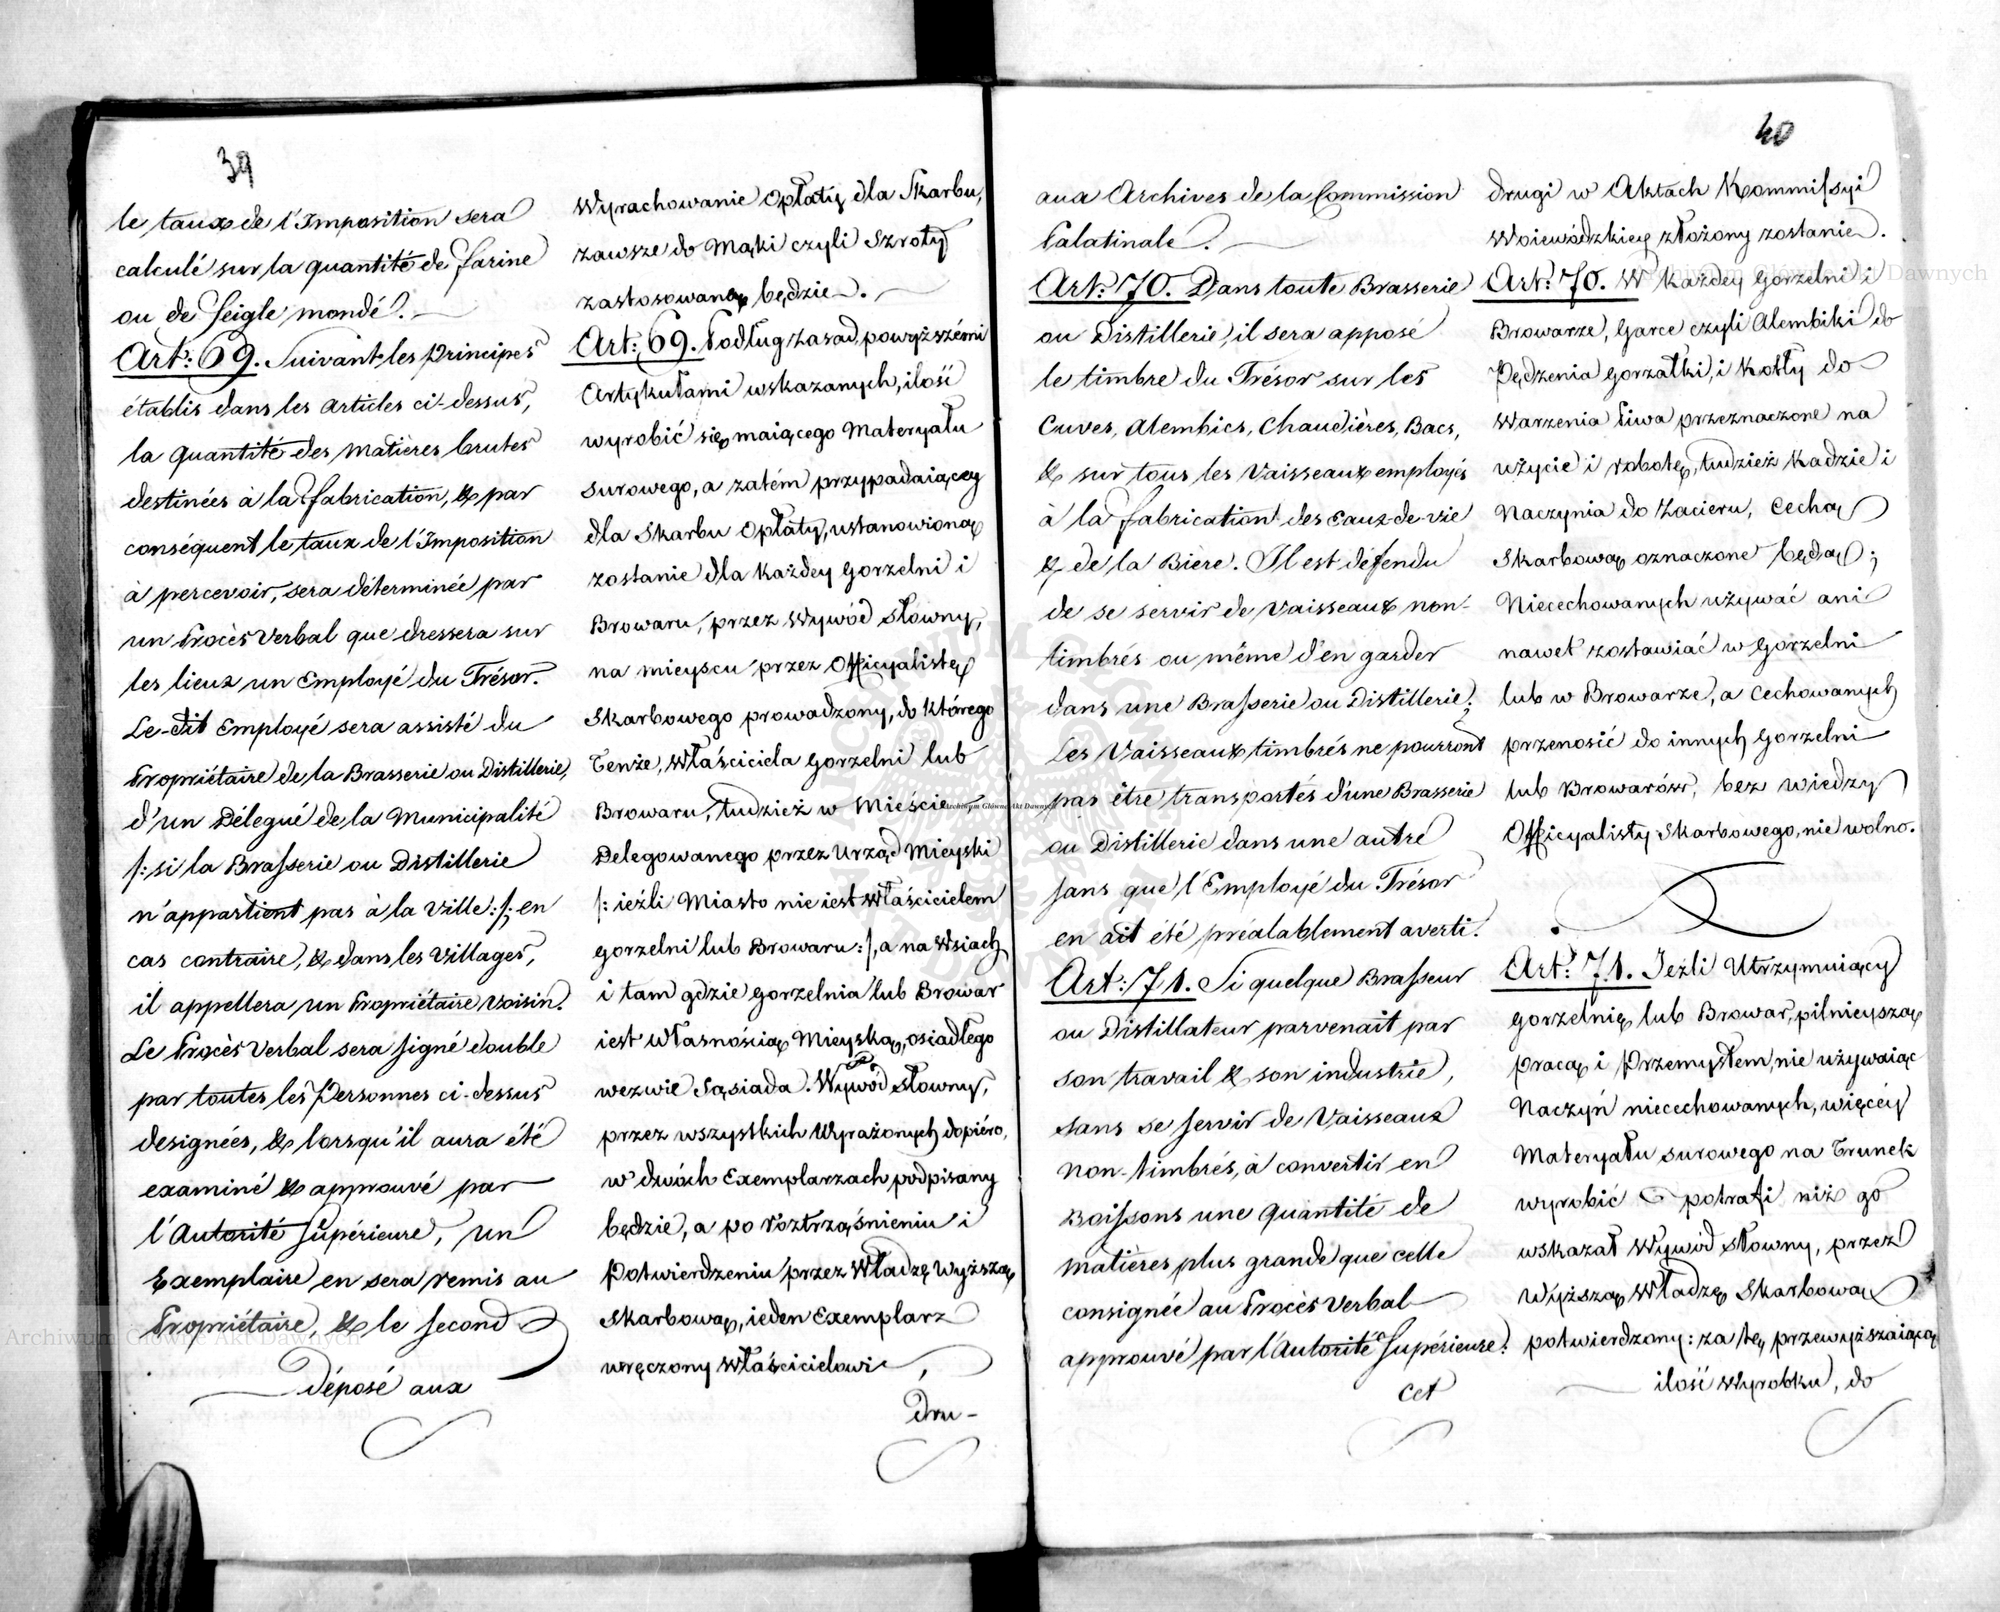 39
le taux de l'Imposition sera
calculé sur la quantité de farine
ou de Seigle mondé.
Art: 69. Suivant les Principes
établis dans les articles ci-dessus,
la quantité des Matières brutes
destinées à la fabrication, & par
conséquent le taux de l'Imposition
à percevoir, sera déterminée par
un Procès Verbal que dressera sur
les lieux un Employé du Trésor.
Le-dit Employé sera assisté du
Propriétaire de la Brasserie ou Distillerie,
d'un Délegué de la Municipalité
/: si la Brasserie ou Distillerie
n'appartient pas à la Ville :/; en
cas contraire, & dans les Villages,
il appellera un Propriétaire voisin.
Le Procès Verbal sera signé double
par toutes les Personnes ci-dessus
designées, & lorsqu'il aura été
examiné & approuvé par
l'Autorité Supérieure, un
Exemplaire en sera remis au
Propriétaire, & le second
déposé aux
Wyrachowanie Opłaty dla Skarbu,
zawsze do Mąki czyli Szroty
zastosowane będzie.
Art: 69. Podług zasad, powyższémi
Artykułami wskazanych, ilość
wyrobić się maiącego Materyału
surowego, a zatém przypadaiącey
dla Skarbu Opłaty, ustanowioną
zostanie dla każdey Gorzelni i
Browaru, przez Wywód Słowny,
na mieyscu przez Officyalistę
Skarbowego prowadzony, do którego
Tenże, Właściciela Gorzelni lub
Browaru, tudzież w Mieście
Delegowanego przez Urząd Mieyski
/: ieźli Miasto nie iest właścicielem
gorzelni lub Browaru :/, a na Wsiach
i tam gdzie gorzelnia lub Browar
iest własnością Mieyską, osiadłego
wezwie Sąsiada. Wywód Słowny,
przez wszystkich Wyrażonych dopiéro,
w dwóch Exemplarzach podpisany
będzie, a po roztrząśnieniu i
Potwierdzeniu przez Władzę Wyższą
Skarbową, ieden Exemplarz
wręczony Właścicielowi,
dru-
40
aux Archives de la Commission
Palatinale.
Art: 70. Dans toute Brasserie
ou Distillerie, il sera apposé
le timbre du Trésor sur les
Cuves, Alembics, Chaudières, Bacs,
& sur tous les Vaisseaux employés
à la fabrication des Eaux-de-vie
& de la Biere. Il est defendu
de se servir de Vaisseaux non-
timbrés ou même d'en garder
dans une Brasserie ou Distillerie;
Les Vaisseaux timbrés ne pourront
pas être transportés d'une Brasserie
ou Distillerie dans une autre
sans que l'Employé du Trésor
en ait été préalablement averti.
Art: 71. Si quelque Brasseur
ou Distillateur parvenait par
son travail & son industrie,
sans se servir de Vaisseaux
non-timbrés, à convertir en
Boissons une quantité de
matières plus grande que celle
consignée au Procès Verbal
approuvé par l'Autorité Supérieure:
cet
drugi w Aktach Kommissyi
Woiewódzkiey złożony zostanie.
Art: 70. W każdey Gorzelni i
Browarze, Garce czyli Alembiki do
Pędzenia gorzałki, i Kotły do
Warzenia Piwa przeznaczone na
użycie i robotę, tudzież Kadzie i
Naczynia do Zacieru, Cechą
Skarbową oznaczone będą;
Niecechowanych używać ani
nawet zostawiać w Gorzelni
lub w Browarze, a Cechowanych
przenosić do innych Gorzelni
lub Browarów, bez wiedzy
Officyalisty Skarbowego, nie wolno.
Art: 71. Jeźli Utrzymuiący
gorzelnię lub Browar, pilnieyszą
pracą i Przemysłem, nie używaiąc
Naczyń niecechowanych, więcéy
Materyału surowego na Trunek
wyrobić potrafi niż go
wskazał Wywód Słowny, przez
Wyższą Władzę Skarbową
potwierdzony: za tę przewyższaiącą
ilość Wyrobku, do